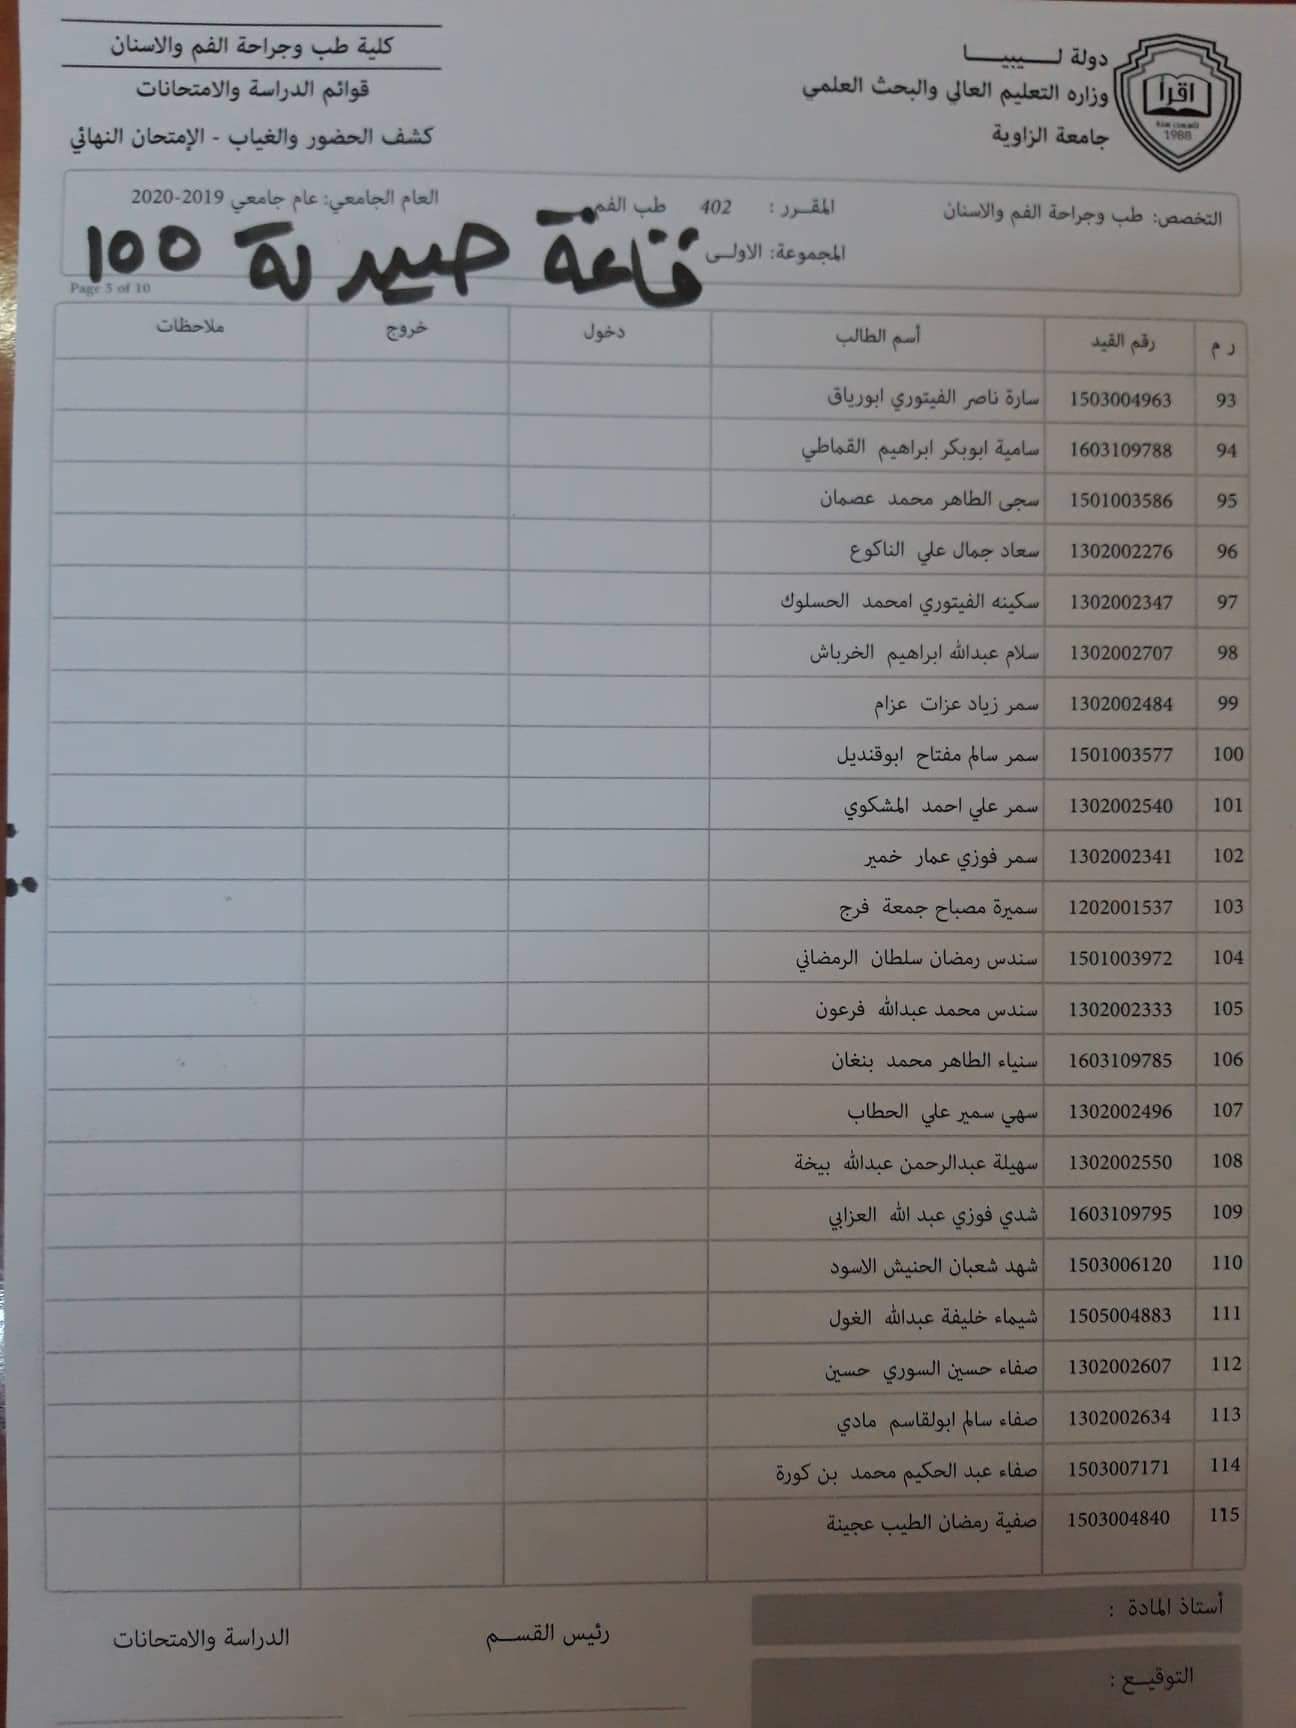 دولة لـــــيبيـــــا
وزاره التعليم العالي والبحث العلمي
جامعة الزاوية
اقرأ
1988
كلية طب وجراحة الفم والاسنان
قوائم الدراسة والامتحانات
كشف الحضور والغياب - الإمتحان النهائي
التخصص: طب وجراحة الفم والاسنان
المقـــرر : 402 طب الفم
العام الجامعي: عام جامعي 2019-2020
المجموعة: الاولــى
قاعة صيدلة 100
Page 5 of 10
ر م رقم القيد أسم الطالب دخول خروج ملاحظات
93 1503004963 سارة ناصر الفيتوري ابورياق
94 1603109788 سامية ابوبكر ابراهيم القماطي
95 1501003586 سجى الطاهر محمد عصمان
96 1302002276 سعاد جمال علي الناكوع
97 1302002347 سكينه الفيتوري امحمد الحسلوك
98 1302002707 سلام عبدالله ابراهيم الخرباش
99 1302002484 سمر زياد عزات عزام
100 1501003577 سمر سالم مفتاح ابوقنديل
101 1302002540 سمر علي احمد المشكوي
102 1302002341 سمر فوزي عمار خمير
103 1202001537 سميرة مصباح جمعة فرج
104 1501003972 سندس رمضان سلطان الرمضاني
105 1302002333 سندس محمد عبدالله فرعون
106 1603109785 سنياء الطاهر محمد بنغان
107 1302002496 سهي سمير علي الحطاب
108 1302002550 سهيلة عبدالرحمن عبدالله بيخة
109 1603109795 شدي فوزي عبد الله العزابي
110 1503006120 شهد شعبان الحنيش الاسود
111 1505004883 شيماء خليفة عبدالله الغول
112 1302002607 صفاء حسين السوري حسين
113 1302002634 صفاء سالم ابولقاسم مادي
114 1503007171 صفاء عبد الحكيم محمد بن كورة
115 1503004840 صفية رمضان الطيب عجينة
أستاذ المادة :
رئيس القســـم
الدراسة والامتحانات
التوقيـــع :